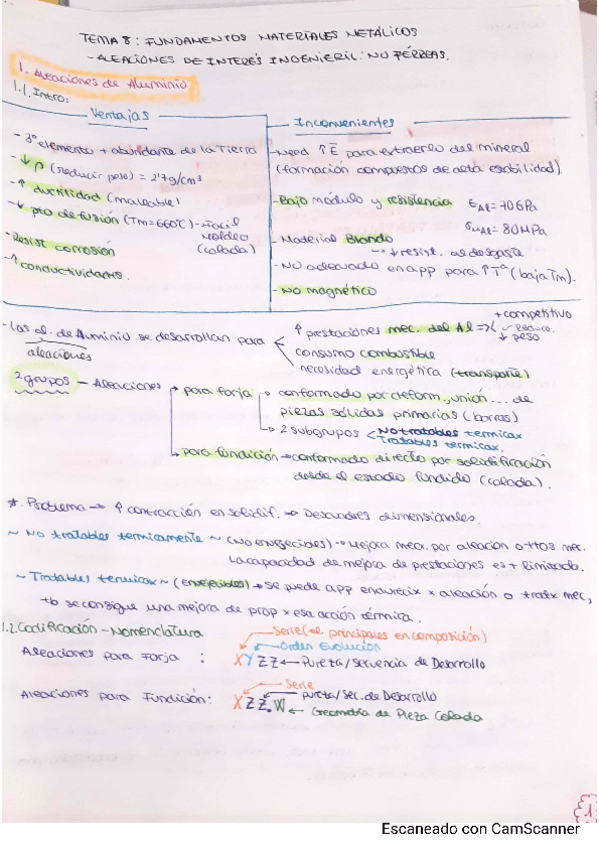 TEMA 8: FUNDAMENTOS MATERIALES METÁLICOS
- ALEACIONES DE INTERÉS INGENIERIL: NO FÉRREAS.
1. Aleaciones de Aluminio
1.1. Intro:
Ventajas
- 3º elemento + abundante de la Tierra
- ↓ ρ (reducir peso) = 2'7g/cm³
- ↑ ductilidad (maleable)
- ↓ pto de fusión (Tm=660ºC) → Fácil
moldeo
(colada)
- Resist corrosión
- ↑ conductividades.
Inconvenientes
- Need ↑ E para extraerlo del mineral
(formación compuestos de alta estabilidad)
- Bajo módulo y resistencia E Al = 70GPa
σ MAX = 80MPa
- Material Blando
→ ↓ resist. al desgaste
- NO adecuado en app para ↑Tª (baja Tm).
- No magnético
- Las al. de Aluminio se desarrollan para
aleaciones
↑ prestaciones mec. del Al =>
+ competitivo
↓ peso
consumo combustible
necesidad energética (transporte)
2 grupos - Aleaciones → para forja → conformado por deform., unión ... de
piezas sólidas primarias (barras)
→ 2 subgrupos < No tratables termicax
Tratables termicax.
→ para fundición → conformado directo por solidificación
desde el estado fundido (colada).
*. Problema → ↑ contracción en solidif. → Descuadres dimensionales.
~ No tratables termicamente ~ (No envejecibles) → Mejora mec. por aleación o ttos mec.
La capacidad de mejora de prestaciones es + limitado.
~ Tratables termicax ~ (Envejecibles) → se puede app endurecix x aleación o tratx mec,
tb se consigue una mejora de prop x esa acción térmica.
1.2. Codificación - Nomenclatura
Serie (el principales en composición)
Orden Evolución
Aleaciones para Forja : XYZZ ← Pureza/secuencia de Desarrollo
Serie
Aleaciones para Fundición: XZZ.W
pureza/sec. de Desarrollo
← Geometría de Pieza Colada
1
Escaneado con CamScanner